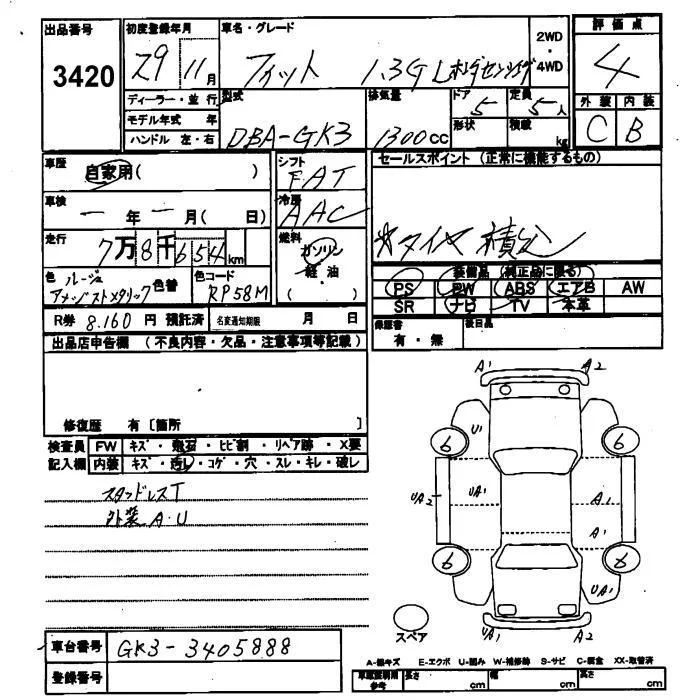 出品番号
3420
初度登録年月
29 11月
ディーラー・並行
モデル年式 年
ハンドル 左・右
車名・グレード
フィット 1.3G Lホンダセンシング
2WD
4WD
型式
DBA-GK3
排気量
1300cc
ドア
5
形状
定員
5人
積載
kg
評価点
4
外装 内装
C B
車歴
自家用( )
車検
ー年ー月( 日)
走行
7万8千654km
色 ルージュ
アメジストメタリック
色替
色コード
RP58M
シフト
FAT
冷房
AAC
燃料
ガソリン
軽・油
( )
セールスポイント (正常に機能するもの)
*タイヤ積込
装備品 (純正品に限る)
PS PW ABS エアB AW
SR ナビ TV 本革
R券 8.160 円 預託済
名変通知期限 月 日
保証書
有・無
後日品
出品店申告欄 (不良内容・欠品・注意事項等記載)
修復歴 有 [箇所 ]
検査員 FW キズ・飛石・ヒビ割・リペア跡・X要
記入欄 内装 キズ・汚レ・コゲ・穴・スレ・キレ・破レ
スタッドレスT
外装A・U
A1 A2
U1
6 6
UA2 UA1 A1
A1
6 6
UA1
UA1 A2
スペア
車台番号
GK3-3405888
登録番号
A-線キズ E-エクボ U-凹み W-補修跡 S-サビ C-腐食 XX-取替済
車庫証明用
参考
長さ cm
幅 cm
高さ cm